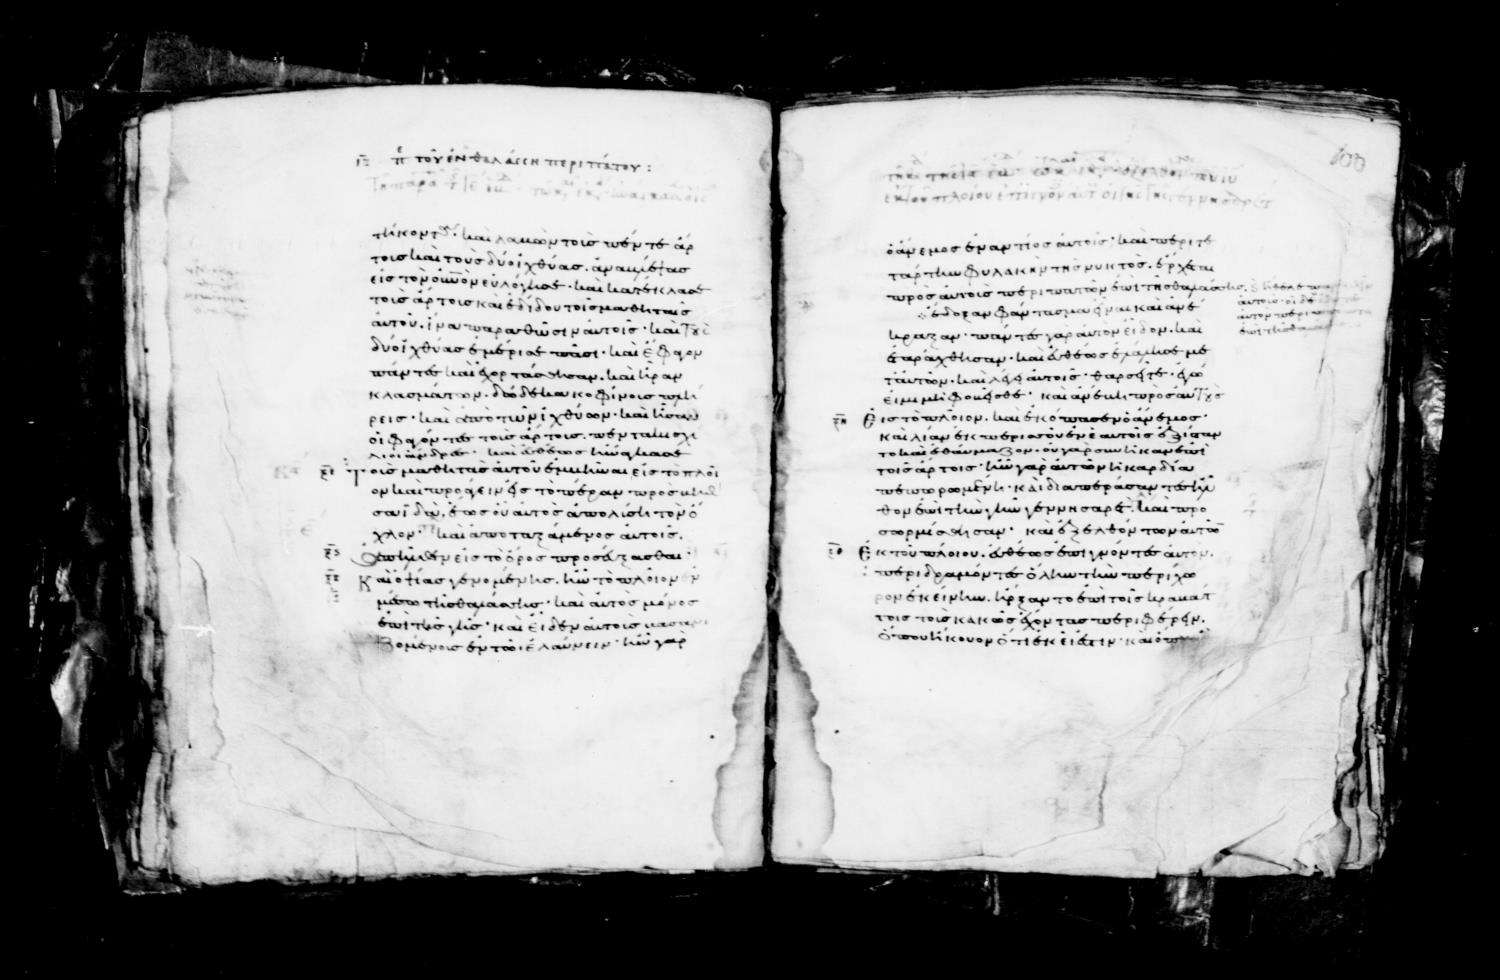 ιζ π τοῦ ἐν θαλάσσῃ περιπάτου:
τήκοντα· καὶ λαβὼν τοὺς πέντε ἄρ
τους καὶ τοὺς δύο ἰχθύας. ἀναβλέψας
εἰς τὸν οὐνὸν εὐλόγησε· καὶ κατέκλασε
τοὺς ἄρτους καὶ ἐδίδου τοῖς μαθηταῖς
αὐτοῦ. ἵνα παραθῶσιν αὐτοῖς· καὶ τοὺς
δύο ἰχθύας ἐμέρισε πᾶσι· καὶ ἔφαγον
πάντες καὶ ἐχορτάσθησαν. καὶ ἦραν
κλασμάτων. δώδεκα κοφίνους πλή
ρεις· καὶ ἀπὸ τῶν ἰχθύων· καὶ ἦσαν
οἱ φαγόντες τοὺς ἄρτους. πεντακισχί
λιοι ἄνδρες· καὶ εὐθέως ἠνάγκασε
Τοὺς μαθητὰς αὐτοῦ ἐμβῆναι εἰς τὸ πλοῖ
ον καὶ προάγειν εἰς τὸ πέραν πρὸς βηθ
σαϊδὰν, ἕως οὗ αὐτὸς ἀπολύσῃ τὸν ὄ
χλον· καὶ ἀποταξάμενος αὐτοῖς.
ἀπῆλθεν εἰς τὸ ὄρος προσεύξασθαι·
Καὶ ὀψίας γενομένης. ἦν τὸ πλοῖον ἐν
μέσω τῆς θαλάσσης· καὶ αὐτὸς μόνος
ἐπὶ τῆς γῆς· καὶ εἶδεν αὐτοὺς βασανι
ζομένους ἐν τῶ ἐλαύνειν· ἦν γὰρ
100
ὁ ἄνεμος ἐναντίος αὐτοῖς· καὶ περὶ τε
τάρτην φυλακὴν τῆς νυκτὸς. ἔρχεται
πρὸς αὐτοὺς περιπατῶν ἐπὶ τῆς θαλάσσης,
ἔδοξαν φάντασμα εἶναι καὶ ἀνέ
κραξαν· πάντες γὰρ αὐτὸν εἶδον. καὶ
ἐταράχθησαν· καὶ εὐθέως ἐλάλησε με
τ᾽αὐτῶν· καὶ λέγει αὐτοῖς· θαρσεῖτε· ἐγώ
εἰμι μὴ φοβεῖσθε· καὶ ἀνέβη πρὸς αὐτοὺς
ξη Εἰς τὸ πλοῖον. καὶ ἐκόπασεν ὁ ἄνεμος·
καὶ λίαν ἐκ περισσοῦ ἐν ἑαυτοῖς ἐξίσταν
το καὶ ἐθαύμαζον· οὐ γὰρ συνῆκαν ἐπὶ
τοῖς ἄρτοις· ἦν γὰρ αὐτῶν ἡ καρδία
πεπωρωμένη· καὶ διαπεράσαντες ἦλ
θον ἐπὶ τὴν γῆν γεννησαρέτ. καὶ προ
σωρμίσθησαν· καὶ ἐξελθόντων αὐτῶν
ξθ Ἐκ τοῦ πλοίου. εὐθέως ἐπιγνόντες αὐτὸν.
περιδραμόντες ὅλην τὴν περίχω
ρον ἐκείνην. ἤρξαντο ἐπὶ τοῖς κραβάτ
τοις τοὺς κακῶς ἔχοντας περιφέρειν.
ὅπου ἤκουον ὅτι ἐκεῖ ἐστιν· καὶ ὅπου